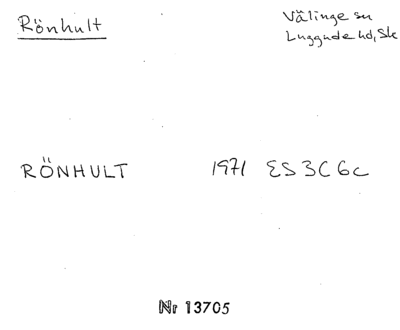 Rönhult
Välinge sn
Luggude hd, Sk
RÖNHULT 1971 ES 3C 6c
Nr 13705